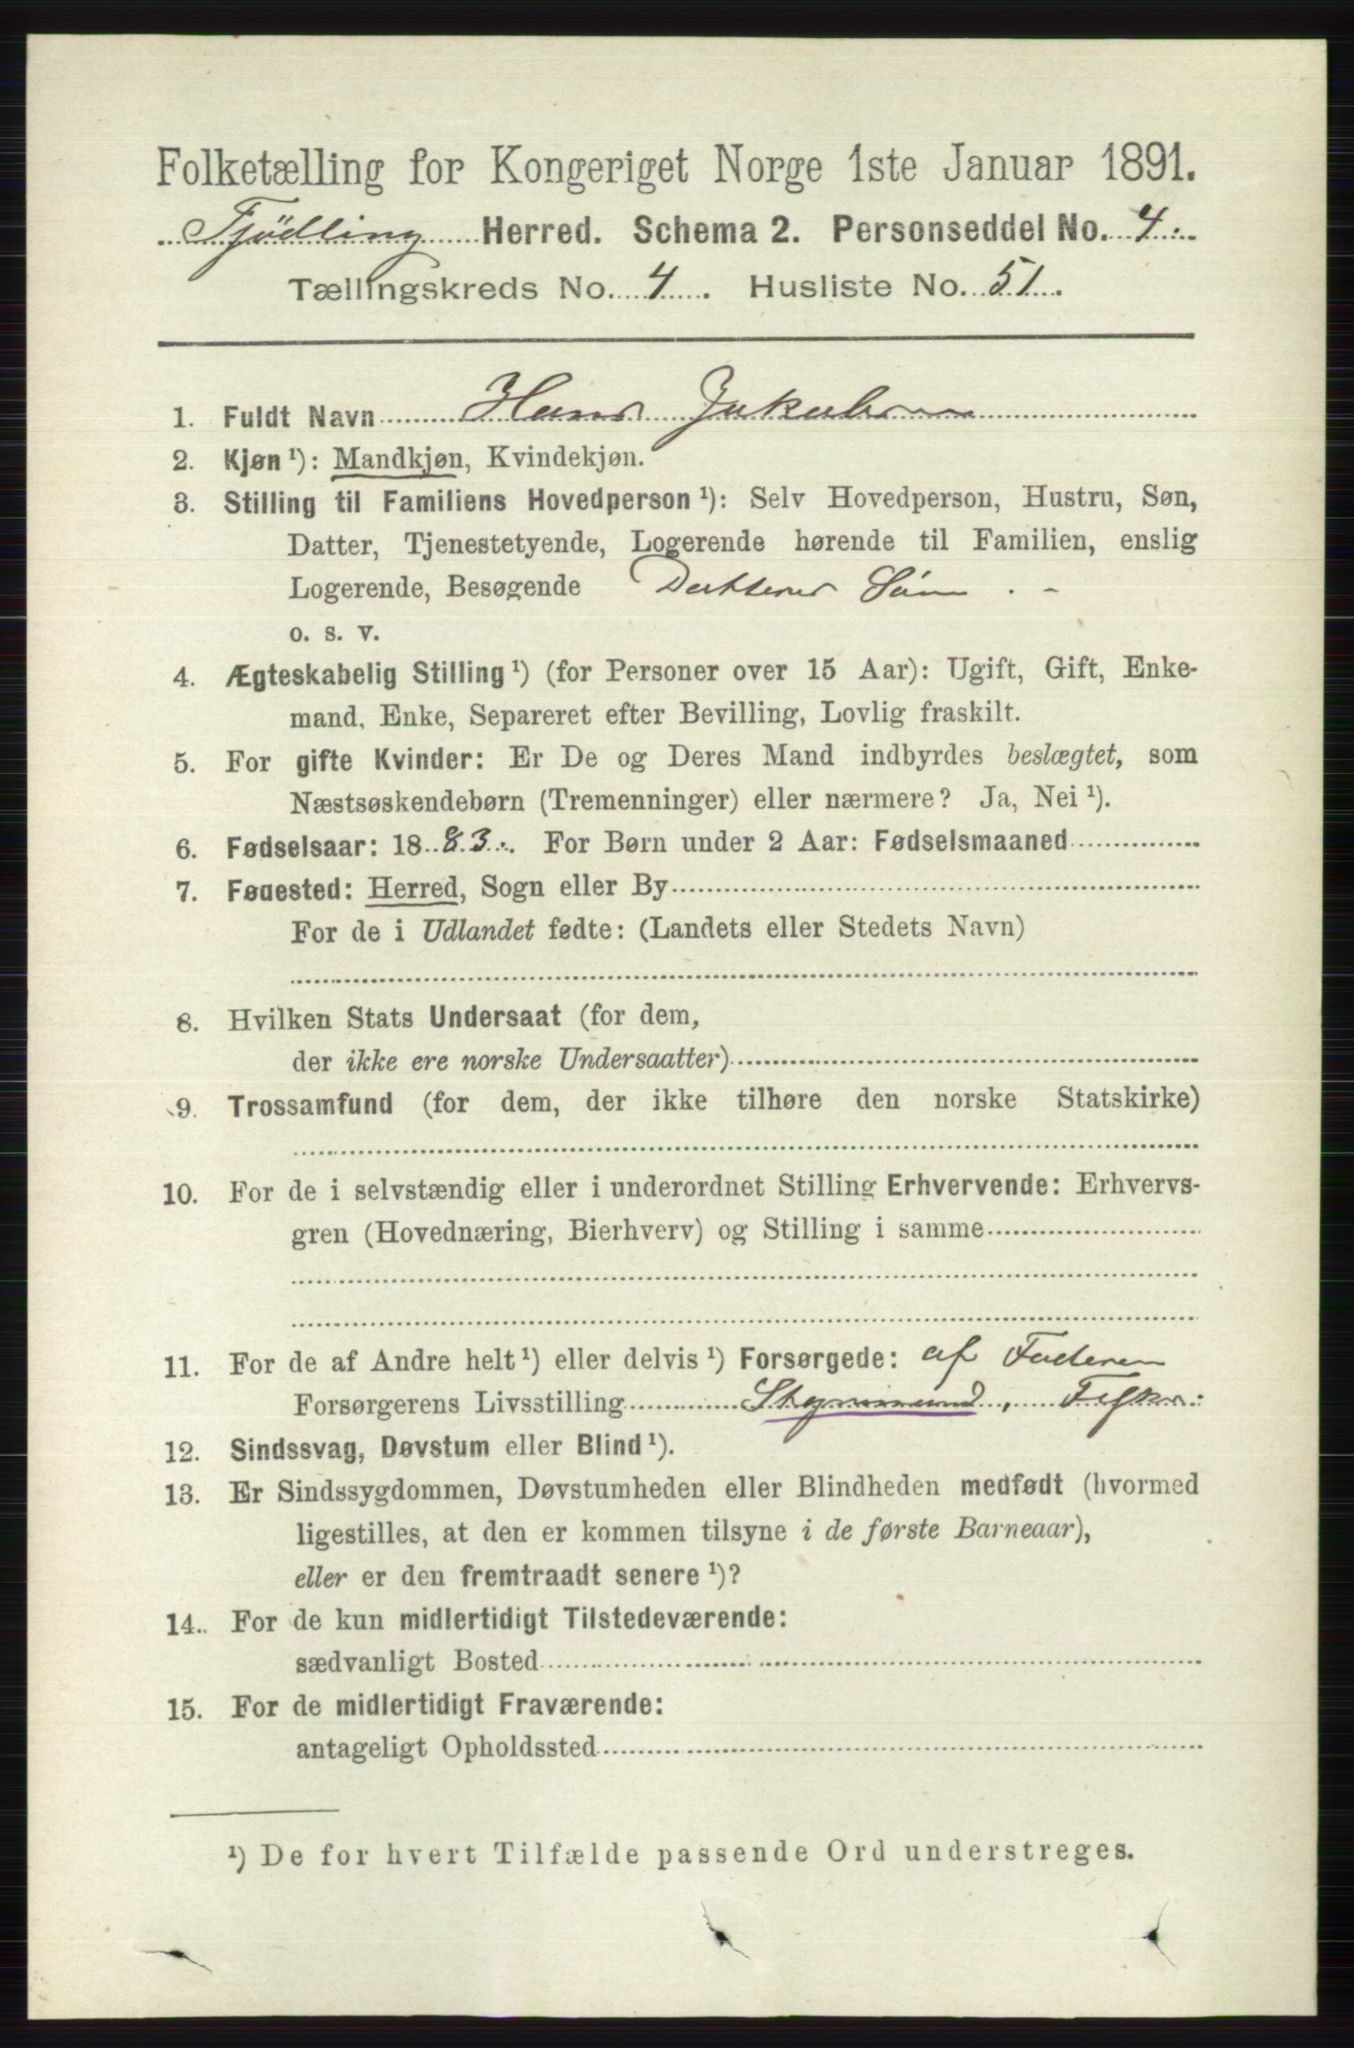 Folketælling for Kongeriget Norge 1ste Januar 1891.
Tjødling Herred. Schema 2. Personseddel No. 4.
Tællingskreds No. 4. Husliste No. 51.
1. Fuldt Navn Hans Jakobsen
2. Kjøn ¹): Mandkjøn, Kvindekjøn.
3. Stilling til Familiens Hovedperson ¹): Selv Hovedperson, Hustru, Søn,
Datter, Tjenestetyende, Logerende hørende til Familien, enslig
Logerende, Besøgende Datters Søn . -
o. s. v.
4. Ægteskabelig Stilling ¹) (for Personer over 15 Aar): Ugift, Gift, Enke-
mand, Enke, Separeret efter Bevilling, Lovlig fraskilt.
5. For gifte Kvinder: Er De og Deres Mand indbyrdes beslægtet, som
Næstsøskendebørn (Tremenninger) eller nærmere? Ja, Nei ¹).
6. Fødselsaar: 1883. For Børn under 2 Aar: Fødselsmaaned
7. Fødested: Herred, Sogn eller By
For de i Udlandet fødte: (Landets eller Stedets Navn)
8. Hvilken Stats Undersaat (for dem,
der ikke ere norske Undersaatter)
9. Trossamfund (for dem, der ikke tilhøre den norske Statskirke)
10. For de i selvstændig eller i underordnet Stilling Erhvervende: Erhvervs-
gren (Hovednæring, Bierhverv) og Stilling i samme
11. For de af Andre helt ¹) eller delvis ¹) Forsørgede: af Faderen
Forsørgerens Livsstilling
12. Sindssvag, Døvstum eller Blind ¹).
13. Er Sindssygdommen, Døvstumheden eller Blindheden medfødt (hvormed
ligestilles, at den er kommen tilsyne i de første Barneaar),
eller er den fremtraadt senere ¹)?
14. For de kun midlertidigt Tilstedeværende:
sædvanligt Bosted
15. For de midlertidigt Fraværende:
antageligt Opholdssted
¹) De for hvert Tilfælde passende Ord understreges.